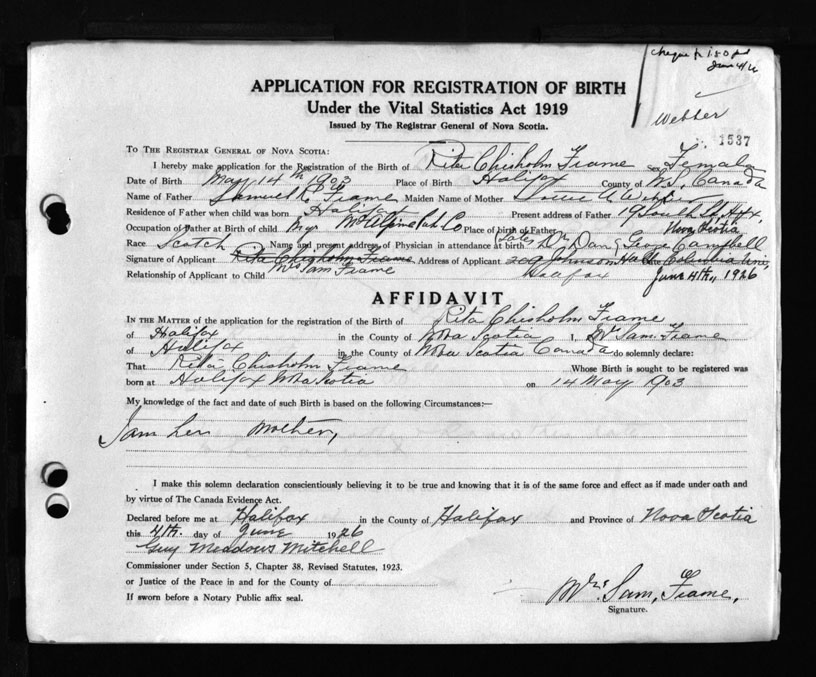 cheque for 1.50 pd
June 4/26
APPLICATION FOR REGISTRATION OF BIRTH
Under the Vital Statistics Act 1919
Issued by The Registrar General of Nova Scotia.
Webber
1537
TO THE REGISTRAR GENERAL OF NOVA SCOTIA:
I hereby make application for the Registration of the Birth of Rita Chisholm Frame Female
Date of Birth May 14th 1903 Place of Birth Halifax County of N.S. Canada
Name of Father Samuel Frame Maiden Name of Mother A Webber
Residence of Father when child was born Halifax Present address of Father 19 South St, Hfx.
Occupation of Father at Birth of child Mgr McAlpine Pub Co Place of birth of Father Nova Scotia
Race Scotch Name and present address of Physician in attendance at birth (Late) Dr Dan George Campbell
Signature of Applicant Rita Chisholm Frame Address of Applicant 209 Johnson Hall Columbia Uni,
Mrs Sam Frame
Relationship of Applicant to Child Halifax June 4th, 1926
AFFIDAVIT
IN THE MATTER of the application for the registration of the Birth of Rita Chisholm Frame
of Halifax in the County of Nova Scotia I, Mrs Sam. Frame
of Halifax in the County of Nova Scotia Canada do solemnly declare:
That Rita Chisholm Frame Whose Birth is sought to be registered was
born at Halifax Nova Scotia on 14 May 1903
My knowledge of the fact and date of such Birth is based on the following Circumstances:—
I am her Mother,
I make this solemn declaration conscientiously believing it to be true and knowing that it is of the same force and effect as if made under oath and
by virtue of The Canada Evidence Act.
Declared before me at Halifax in the County of Halifax and Province of Nova Scotia
this 4th. day of June 1926
Guy Meadows Mitchell
Commissioner under Section 5, Chapter 38, Revised Statutes, 1923.
or Justice of the Peace in and for the County of
If sworn before a Notary Public affix seal.
Mrs Sam, Frame,
Signature.